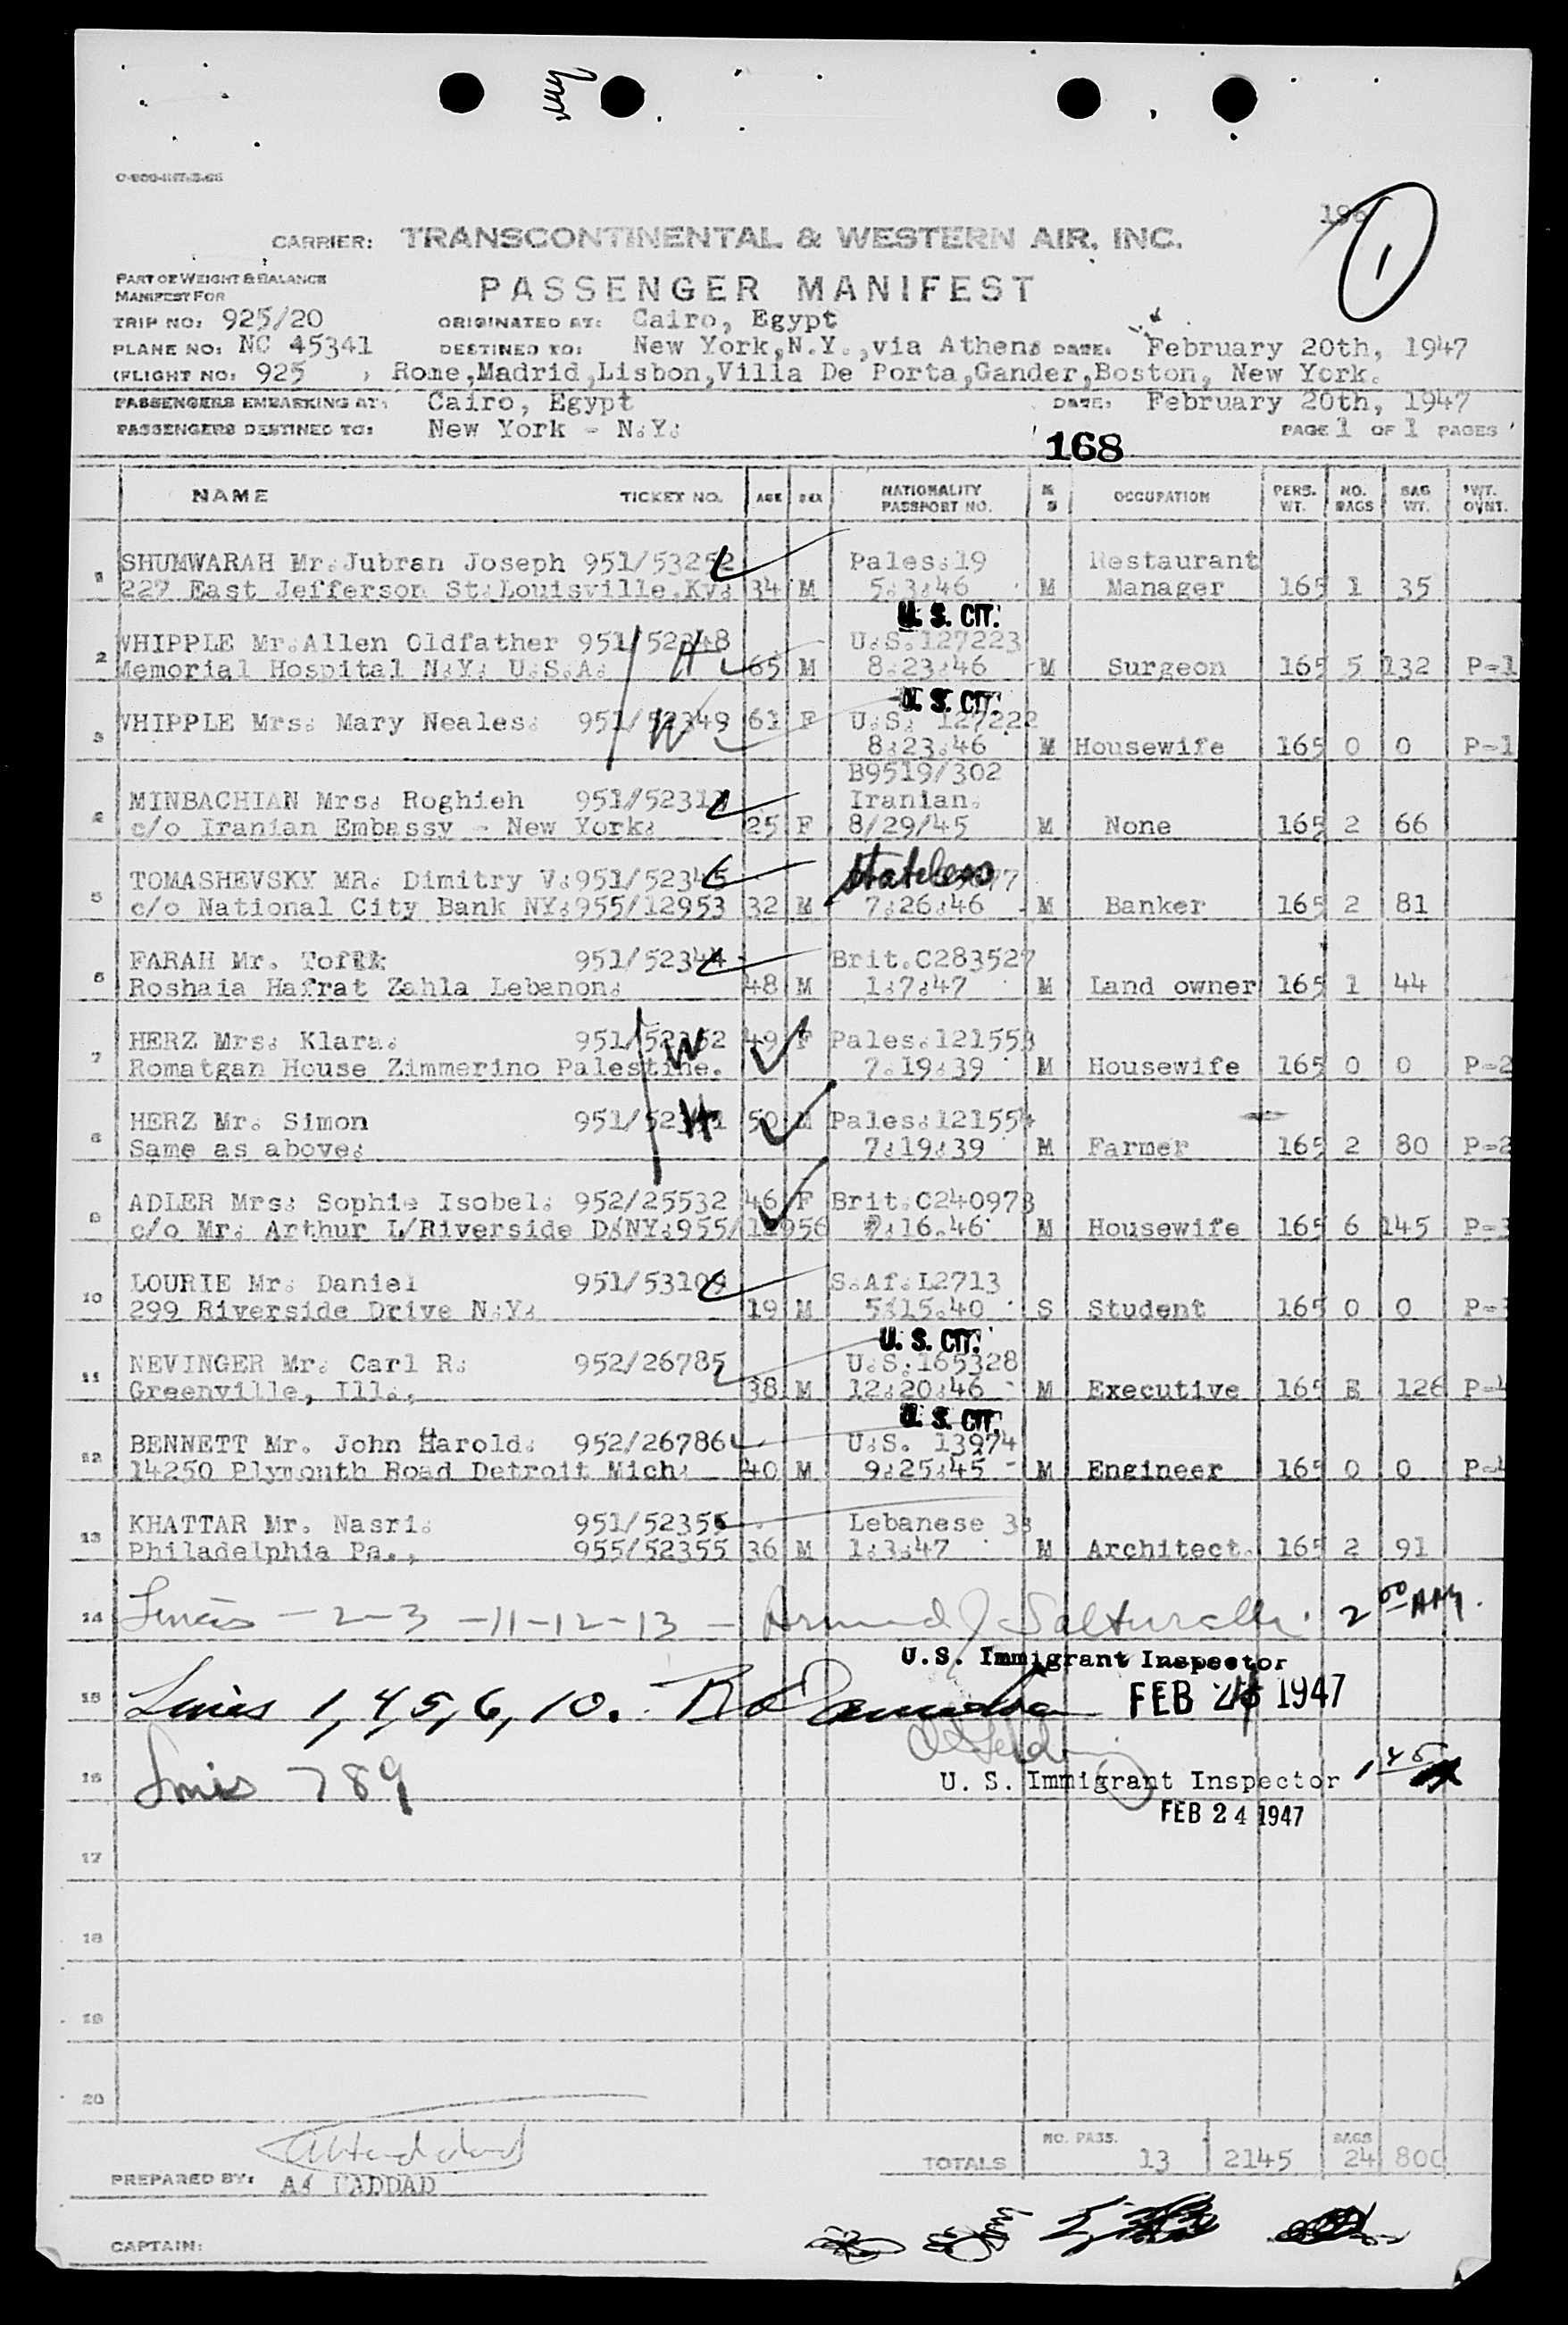 168
1
CARRIER: TRANSCONTINENTAL & WESTERN AIR, INC.
PART OF WEIGHT & BALANCE
MANIFEST FOR
PASSENGER MANIFEST
TRIP NO: 925/20 ORIGINATED AT: Cairo, Egypt
PLANE NO: NC 45341 DESTINED TO: New York,N.Y.,via Athens DATE: February 20th, 1947
(FLIGHT NO: 925 ) Rome,Madrid,Lisbon,Villa De Porta,Gander,Boston, New York.
PASSENGERS EMBARKING AT: Cairo, Egypt DATE: February 20th, 1947
PASSENGERS DESTINED TO: New York - N.Y. PAGE 1 OF 1 PAGES
NAME TICKET NO. AGE SEX NATIONALITY PASSPORT NO. M S OCCUPATION PERS. WT. NO. BAGS BAG WT. WT. OVNT.
1 SHUMWARAH Mr.Jubran Joseph 951/53252 Pales.19 Restaurant
227 East Jefferson St.Louisville.Ky. 34 M 5.3.46 M Manager 165 1 35
U. S. CIT.
2 WHIPPLE Mr.Allen Oldfather 951/52348 H U.S.127223
Memorial Hospital N.Y. U.S.A. 65 M 8.23.46 M Surgeon 165 5 132 P-1
U. S. CIT.
3 WHIPPLE Mrs. Mary Neales. 951/52349 W 61 F U.S. 127222
8.23.46 M Housewife 165 0 0 P-1
B9519/302
4 MINBACHIAN Mrs. Roghieh 951/5231 Iranian.
c/o Iranian Embassy - New York. 25 F 8/29/45 M None 165 2 66
5 TOMASHEVSKY MR. Dimitry V.951/52345 Stateless
c/o National City Bank NY.955/12953 32 M 7.26.46 M Banker 165 2 81
6 FARAH Mr. Tofik 951/52344 Brit.C283527
Roshaia Hafrat Zahla Lebanon. 48 M 1.7.47 M Land owner 165 1 44
7 HERZ Mrs. Klara. 951/52352 W 49 F Pales.121553
Romatgan House Zimmerino Palestine. 7.19.39 M Housewife 165 0 0 P-2
8 HERZ Mr. Simon 951/52351 H 50 M Pales.121554
Same as above. 7.19.39 M Farmer 165 2 80 P-2
9 ADLER Mrs. Sophie Isobel. 952/25532 46 F Brit.C240973
c/o Mr. Arthur L/Riverside D.NY.955/12956 7.16.46 M Housewife 165 6 145 P-3
10 LOURIE Mr. Daniel 951/53109 S.Af.L2713
299 Riverside Drive N.Y. 19 M 5.15.40 S Student 165 0 0 P-3
U. S. CIT.
11 NEVINGER Mr. Carl R. 952/26785 U.S.165328
Greenville, Ill., 38 M 12.20.46 M Executive 165 126 P-4
U. S. CIT.
12 BENNETT Mr. John Harold. 952/26786 U.S. 13974
14250 Plymouth Road Detroit Mich. 40 M 9.25.45 M Engineer 165 0 0 P-4
13 KHATTAR Mr. Nasri. 951/52355 Lebanese 33
Philadelphia Pa., 955/52355 36 M 1.3.47 M Architect. 165 2 91
14 Lines - 2-3 -11-12-13 - 2 00
U.S. Immigrant Inspector
15 Lines 1, 4, 5, 6, 10. FEB 24 1947
16 Lines 7 8 9 U. S. Immigrant Inspector 1 45
FEB 24 1947
17
18
19
20
TOTALS NO. PASS. 13 2145 BAGS 24 800
PREPARED BY: A. HADDAD
CAPTAIN: